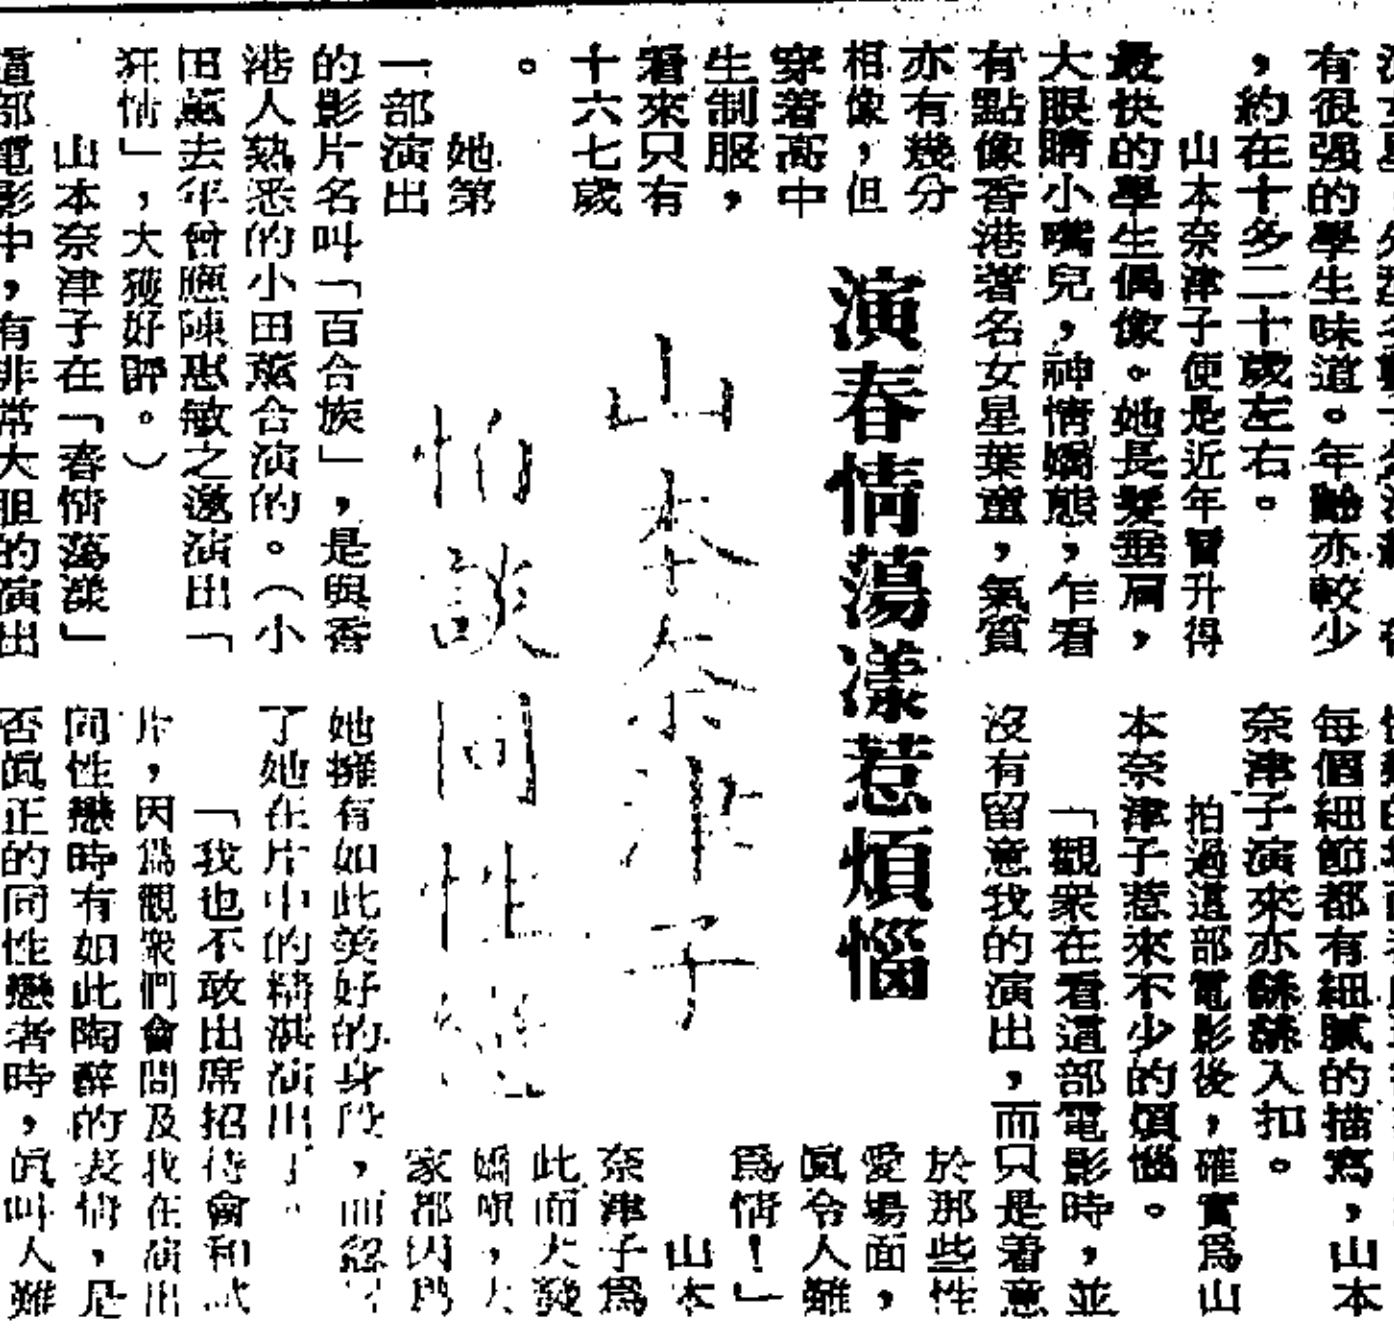 有很强的學生味道。年齡亦較少
，約在十多二十歲左右。
山本奈津子便是近年冒升得
最快的學生偶像。她長髮垂肩，
大眼睛小嘴兒，神情嬌態，乍看
有點像香港著名女星葉童，氣質
亦有幾分
相像，但
穿着高中
生制服，
看來只有
十六七歲
。
她第
一部演出
的影片名叫「百合族」，是與香
港人熟悉的小田薰合演的。（小
田薰去年曾應陳惠敏之邀演出「
狂情」，大獲好評。）
山本奈津子在「春情蕩漾」
這部電影中，有非常大胆的演出
演春情蕩漾惹煩惱
山本奈津子
怕談同性戀
每個細節都有細膩的描寫，山本
奈津子演來亦絲絲入扣。
拍過這部電影後，確實爲山
本奈津子惹來不少的煩惱。
「觀衆在看這部電影時，並
沒有留意我的演出，而只是着意
於那些性
愛場面，
眞令人難
爲情！」
山本
奈津子爲
此而大發
嬌嗔，大
家都因爲
她擁有如此美好的身段，而忽
了她在片中的精湛演出了。
「我也不敢出席招待會和試
片，因爲觀衆們會問及我在演出
同性戀時有如此陶醉的表情，是
否眞正的同性戀者時，眞叫人難